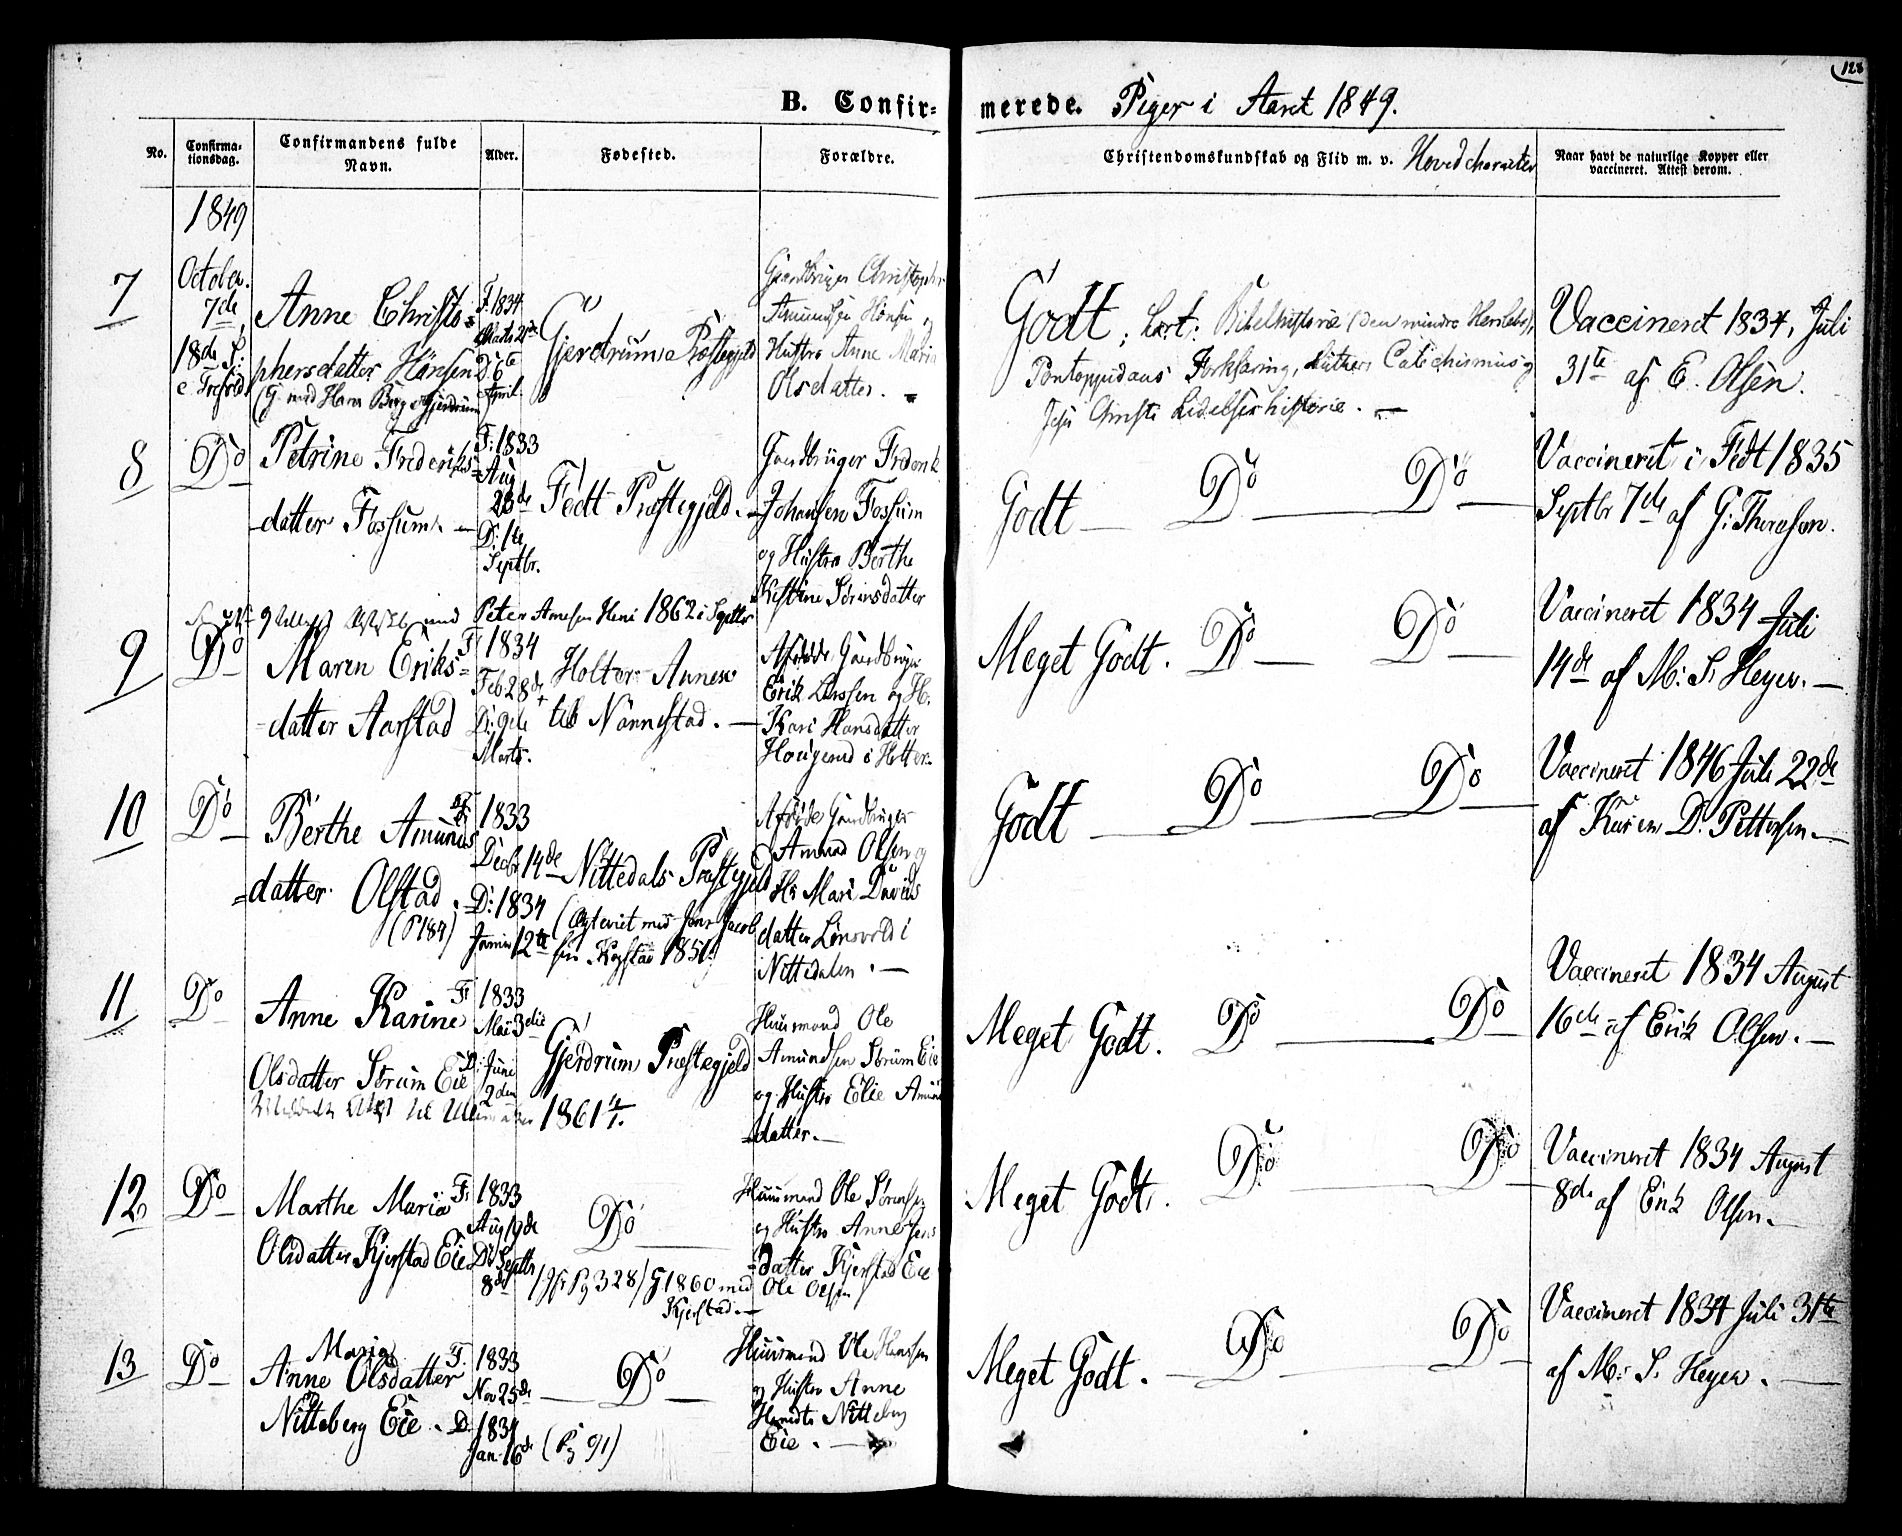 128
B. Confir- merede. Piger i Aaret 1849.
No.
Confirma-
tionsdag.
Confirmandens fulde
Navn.
Alder.
Fødested.
Forældre.
Christendomskundskab og Flid m. v. Hovedcharacter
Naar havt de naturlige Kopper eller
vaccineret. Attest derom.
1849
7
October
7de
18de S:
e Trefold
Anne Christo=
phersdatter Hönsen
(G med Hans Berg Gjerdrum
F. 1834
Marts 21
D: 6te
April
Gjerdrums Præstegjeld
Gaardbruger Christopher
Amundsen Hönsen og
Hustro Anne Maria
Olsdatter.
Godt. Lært: Bibelhistorie (den mindre Herslebs),
Pontoppidans Forklaring, Luthers Catechismus og
Jesu Christi Lidelseshistorie.
Vaccineret 1834, Juli
31te af E. Olsen.
8
Do
Petrine Frederiks=
datter Fossum.
F: 1833
Aug
28de
D: 1te
Septbr.
Fedt Præstegjeld.
Gaardbruger Frederik
Johansen Fossum
og Hustro Berthe
Kistine Sörensdatter
Godt Do Do
Vaccineret i Fedt 1835
Septbr 7de af G: Thoresen.
med Peter Arnesen Heni 1862 i Septbr
9
Do
Maren Eriks=
datter Aarstad
F: 1834
Feb 28de
D: 9de
Marts.
Holter Annex
til Nannestad.
Afdøde Gaardbruger
Erik Larssen og H:
Kari Hansdatter
Hougerud i Holter.
Meget Godt. Do Do
Vaccineret 1834 Juli
14de af M: S. Heyer.
10
Do
Berthe Amunds
=datter Olstad.
(P 184)
F: 1833
Decbr 14de
D: 1834
Januar 12te
Nittedals Præstegjeld
(Egteviet med Jens Jacob
sen Kogstad 1851.)
Afdøde Gaardbruger
Amund Olsen og
H: Mari Davids
datter Lönsvold i
Nittedalen.
Godt Do Do
Vaccineret 1846 Juli 22de
af Karen D. Pettersen.
11
Do
Anne Karine
Olsdatter Sörum Eie
F: 1833
Mai 3die
D: Juni
2den
Gjerdrum Præstegjeld
Huusmand Ole
Amundsen Sörum Eie
og Hustro Elie Amund
datter.
Meget Godt. Do Do
Vaccineret 1834 August
16de af Erik Olsen.
1861
12
Do
Marthe Maria
Olsdatter Kjerstad Eie
F: 1833
Aug 19de
D: Septbr
8de
Do
Pg 328) G 1860 med Ole Olsen
Kjerstad.
Huusmand Ole Sörensen
og Hustro Anne Jens
=datter Kjerstad Eie
Meget Godt. Do Do
Vaccineret 1834 August
8de af Erik Olsen.
13
Do
Maria
Anne Olsdatter
Nitteberg Eie.
F. 1833
Nov 25de
D. 1834
Jan. 16de
Do
(Pg 91)
Huusmand Ole Hanssen
og Hustro Anne
Nitteberg
Eie.
Meget Godt. Do Do
Vaccineret 1834 Juli 31te
af M: S. Heyer.